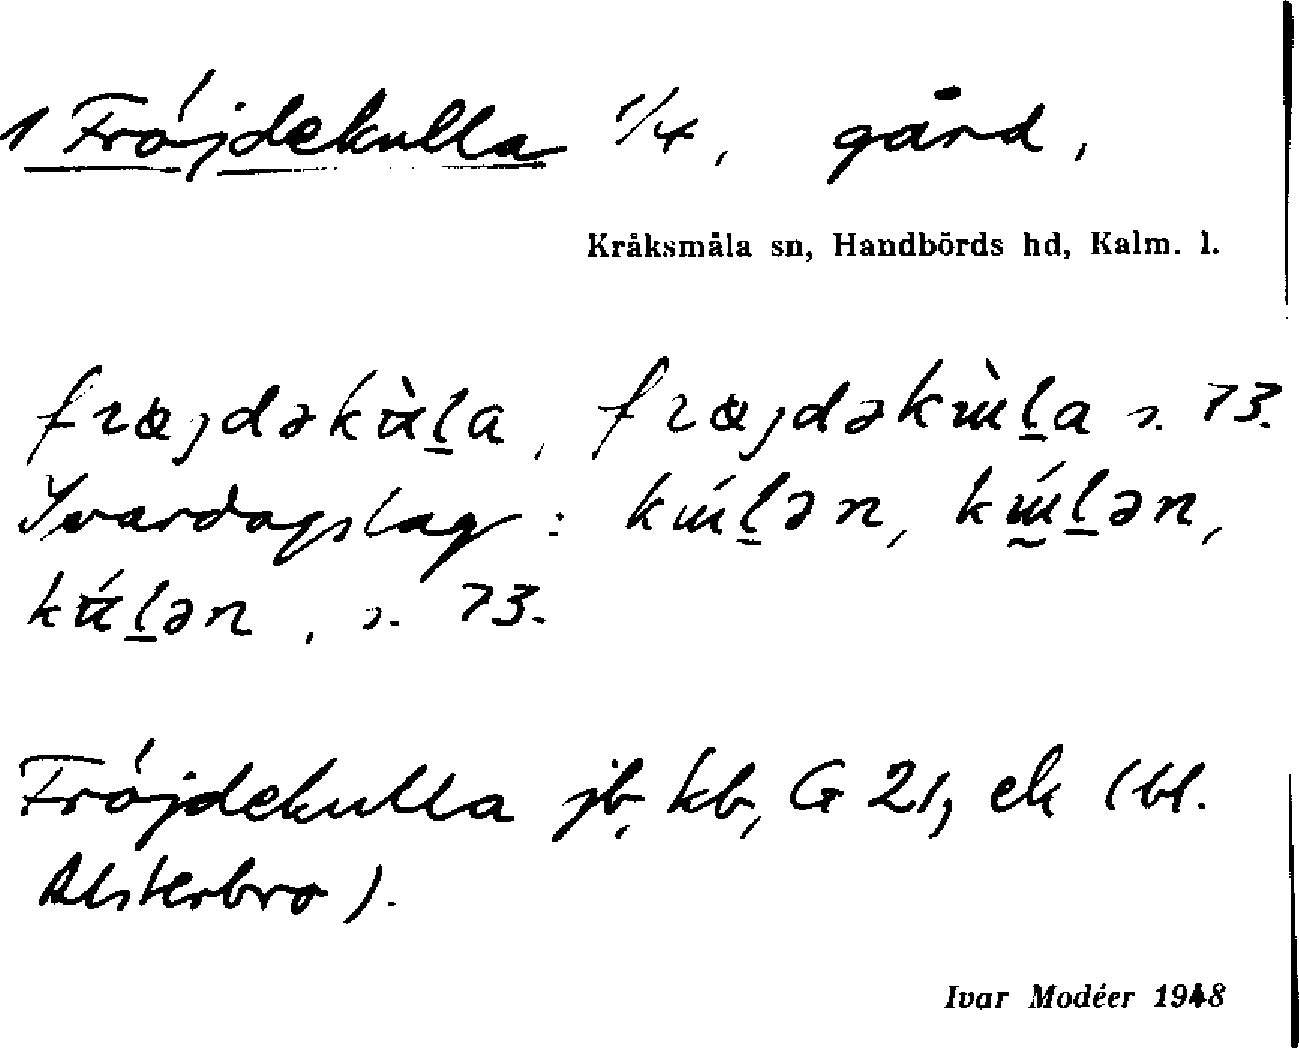 1 Fröjdekulla 1/4, gård,
Kråksmåla sn, Handbörds hd, Kalm. l.
frœjdəkɯ̀l̠a, frœjdəkɯ̀l̠a s. 73.
I vardagslag: kɯ́l̠ən, kɯ́l̠ən,
kʉ́l̠ən, s. 73.
Fröjdekulla jb, kb, G 21, ek (bl.
Alsterbro).
Ivar Modéer 1948